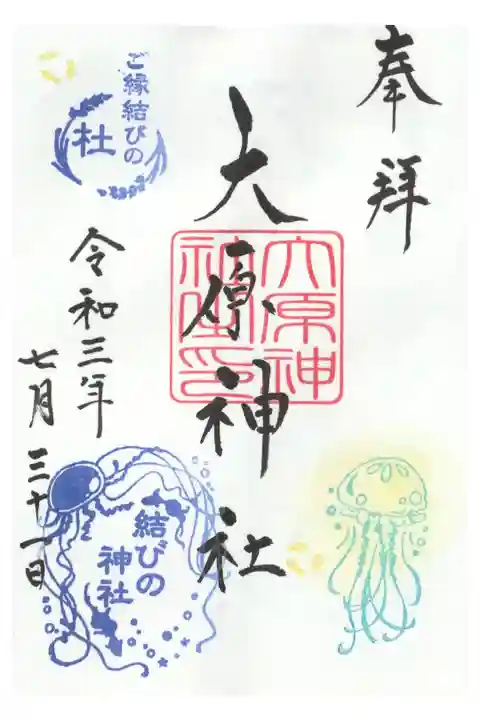 奉拝
大原神社
大原神
社之印
ご縁結びの
杜
令和三年
七月三十一日
結びの
神社